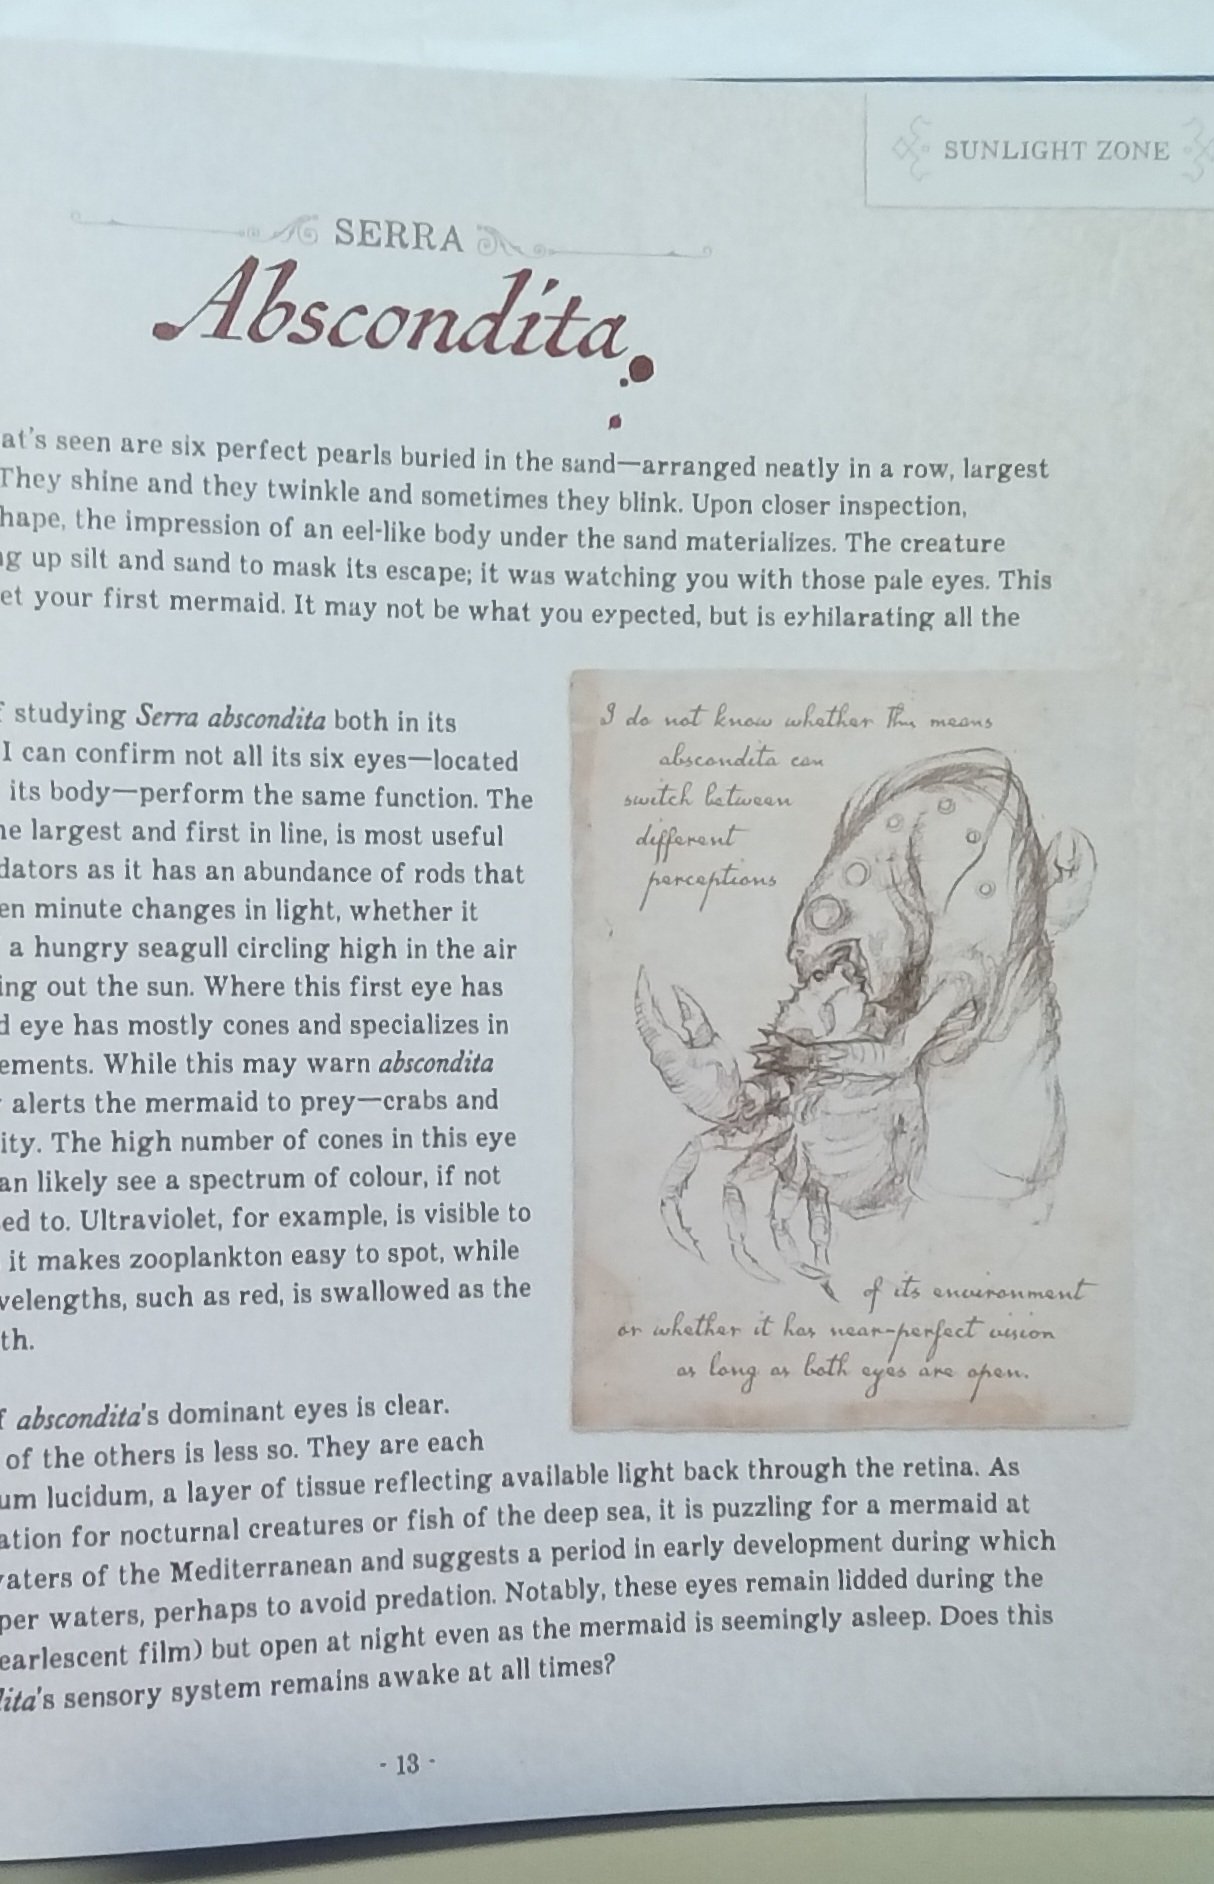 SUNLIGHT ZONE
SERRA
Abscondita
at's seen are six perfect pearls buried in the sand—arranged neatly in a row, largest
They shine and they twinkle and sometimes they blink. Upon closer inspection,
hape, the impression of an eel-like body under the sand materializes. The creature
ng up silt and sand to mask its escape; it was watching you with those pale eyes. This
et your first mermaid. It may not be what you expected, but is exhilarating all the
f studying Serra abscondita both in its
I can confirm not all its six eyes—located
its body—perform the same function. The
he largest and first in line, is most useful
dators as it has an abundance of rods that
en minute changes in light, whether it
a hungry seagull circling high in the air
ing out the sun. Where this first eye has
d eye has mostly cones and specializes in
ements. While this may warn abscondita
alerts the mermaid to prey—crabs and
ity. The high number of cones in this eye
an likely see a spectrum of colour, if not
ed to. Ultraviolet, for example, is visible to
it makes zooplankton easy to spot, while
velengths, such as red, is swallowed as the
th.
I do not know whether this means
abscondita can
switch between
different
perceptions
of its environment
or whether it has near-perfect vision
as long as both eyes are open.
f abscondita's dominant eyes is clear.
of the others is less so. They are each
um lucidum, a layer of tissue reflecting available light back through the retina. As
ation for nocturnal creatures or fish of the deep sea, it is puzzling for a mermaid at
aters of the Mediterranean and suggests a period in early development during which
per waters, perhaps to avoid predation. Notably, these eyes remain lidded during the
earlescent film) but open at night even as the mermaid is seemingly asleep. Does this
dita's sensory system remains awake at all times?
- 13 -